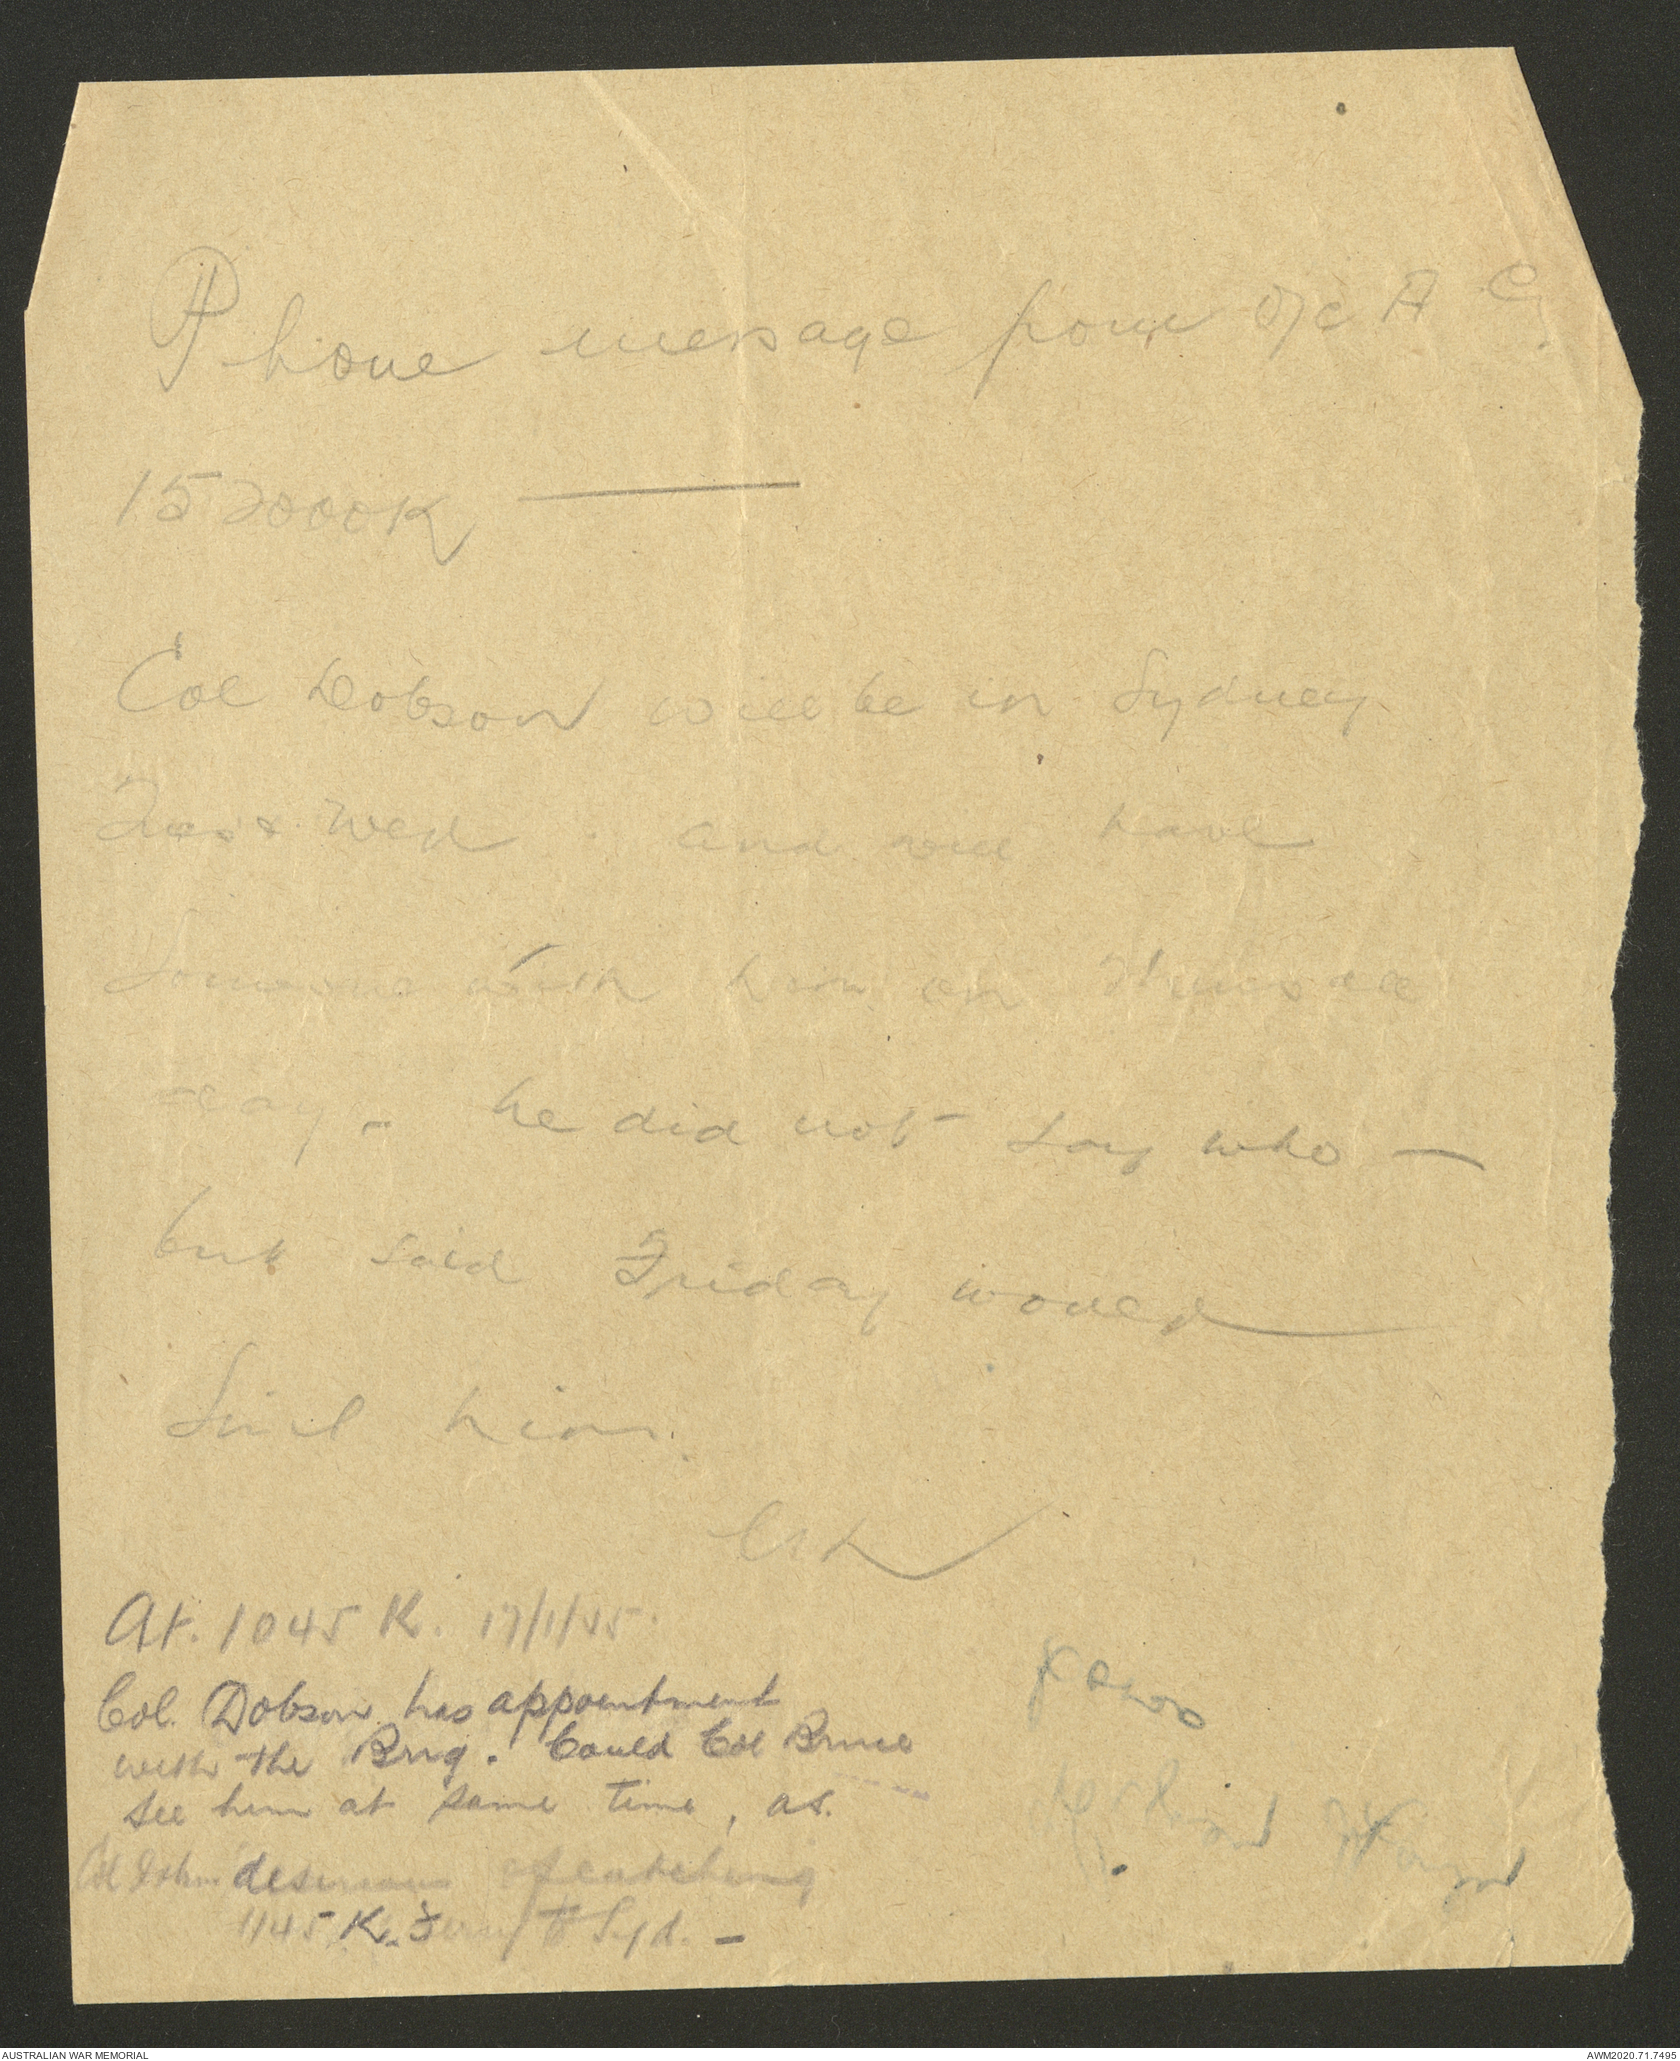 Phone message from O/C A Cy.
152000K
Col Dobson will be in Sydney
Tues & Wed. and will have
someone with him on Thurs
day - he did not say who -
but said Friday would
suit him.
At. 1045 K. 17/1/45.
Col. Dobson has appointment
with the Brig. Could Col Bruce
see him at same time, as.
Col Dobson desirous of catching
1145 K. Ferry to Syd. -
AUSTRALIAN WAR MEMORIAL
AWM2020.71.7495